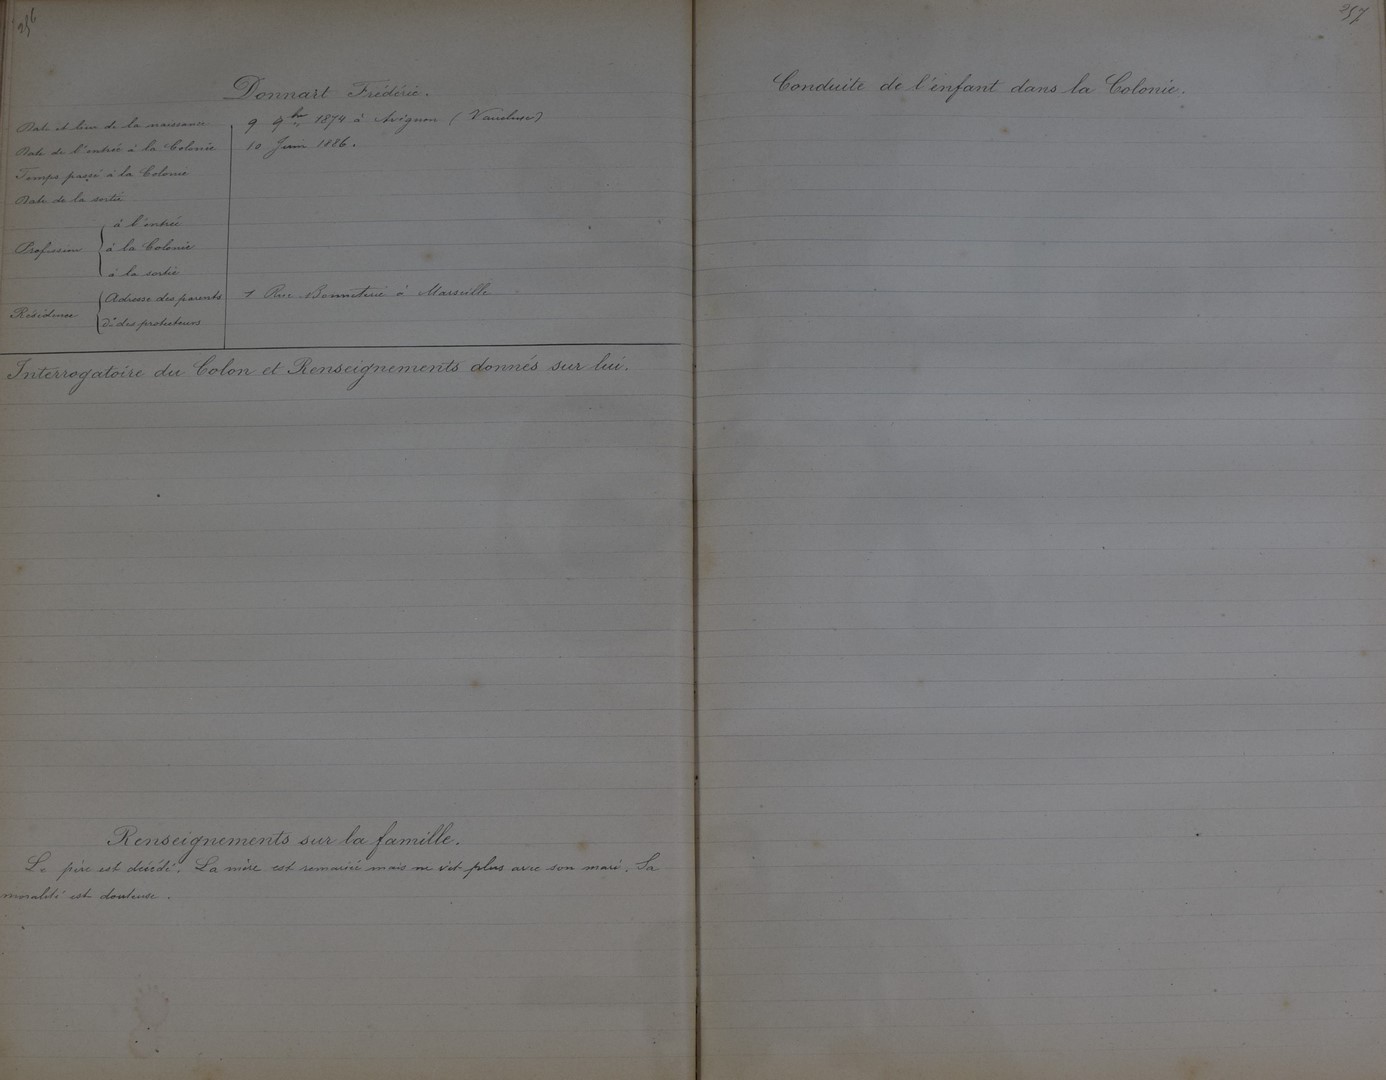 256
Donnart Frédéric.
Date et lieu de la naissance 9 9bre 1874 à Avignon (Vaucluse)
Date de l'entrée à la Colonie 10 Juin 1886.
Temps passé à la Colonie
Date de la sortie
Profession
à l'entrée
à la Colonie
à la sortie
Résidence
Adresse des parents 1 Rue Bonneterie à Marseille
do des protecteurs
Interrogatoire du Colon et Renseignements donnés sur lui.
Renseignements sur la famille.
Le père est décédé. La mère est remariée mais ne vit plus avec son mari. Sa
moralité est douteuse.
257
Conduite de l'enfant dans la Colonie.